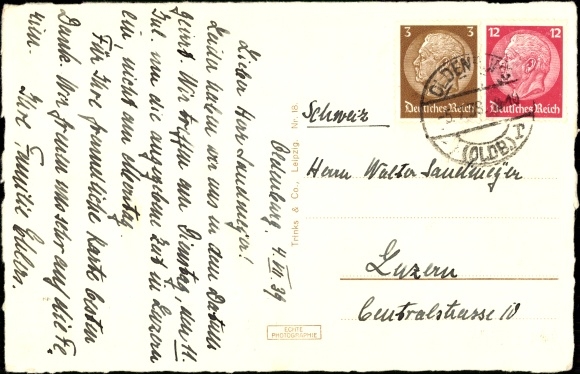 Oldenburg, 4. VII. 39
Lieber Herr Sandmeijer!
Leider haben wir uns in dem Datum
geirrt. Wir treffen am Dienstag, den 11.
Jul. um die angegebene Zeit in Luzern
ein, nicht am Montag.
Für Ihre freundliche Karte besten
Dank. Wir freuen uns sehr auf die Fe,
rien. Ihre Familie
Trinks & Co., Leipzig. Nr. 18.
3 3
Deutsches Reich
12 12
Deutsches Reich
OLDENBURG
(OLDB.) r
Schweiz
Herrn Walter Sandmeijer
Luzern
Centralstrasse 10
ECHTE
PHOTOGRAPHIE